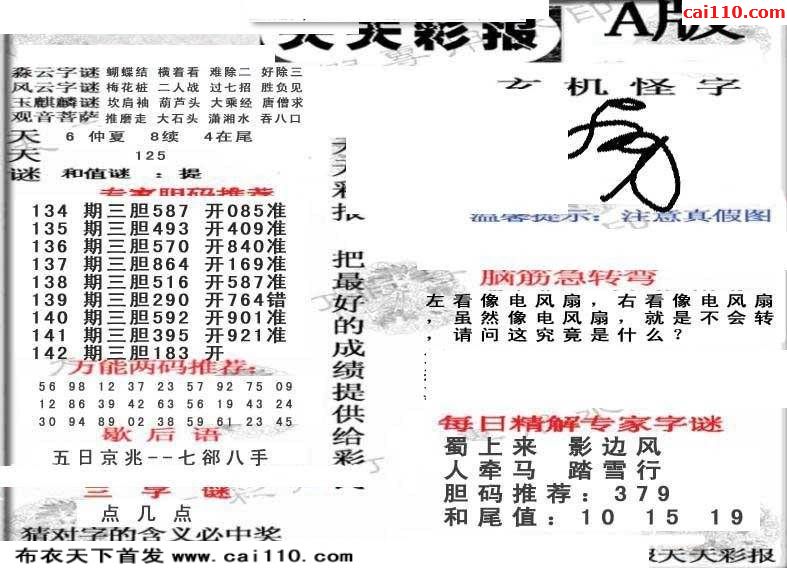 cai110.com
天天彩报 A版
森云字谜 蝴蝶结 横着看 难除二 好除三
风云字谜 梅花桩 二人战 过七招 胜负见
玉麒麟谜 坎肩袖 葫芦头 大乘经 唐僧求
观音菩萨 推磨走 大石头 潇湘水 吞八口
天 6 仲夏 8续 4在尾
天 125
谜 和值谜 : 提
专家胆码推荐
134 期三胆587 开085准
135 期三胆493 开409准
136 期三胆570 开840准
137 期三胆864 开169准
138 期三胆516 开587准
139 期三胆290 开764错
140 期三胆592 开901准
141 期三胆395 开921准
142 期三胆183 开
万能两码推荐:
56 98 12 37 23 57 92 75 09
12 86 39 42 63 56 19 43 24
30 94 89 02 38 59 61 23 45
歇后语
五日京兆--七郤八手
三字谜
点几点
猜对字的含义必中奖
布衣天下首发 www.cai110.com
天天彩报 把最好的成绩提供给彩
玄机怪字
温馨提示: 注意真假图
脑筋急转弯
左看像电风扇，右看像电风扇
，虽然像电风扇，就是不会转
，请问这究竟是什么？
每日精解专家字谜
蜀上来 影边风
人牵马 踏雪行
胆码推荐: 379
和尾值: 10 15 19
版天天彩报